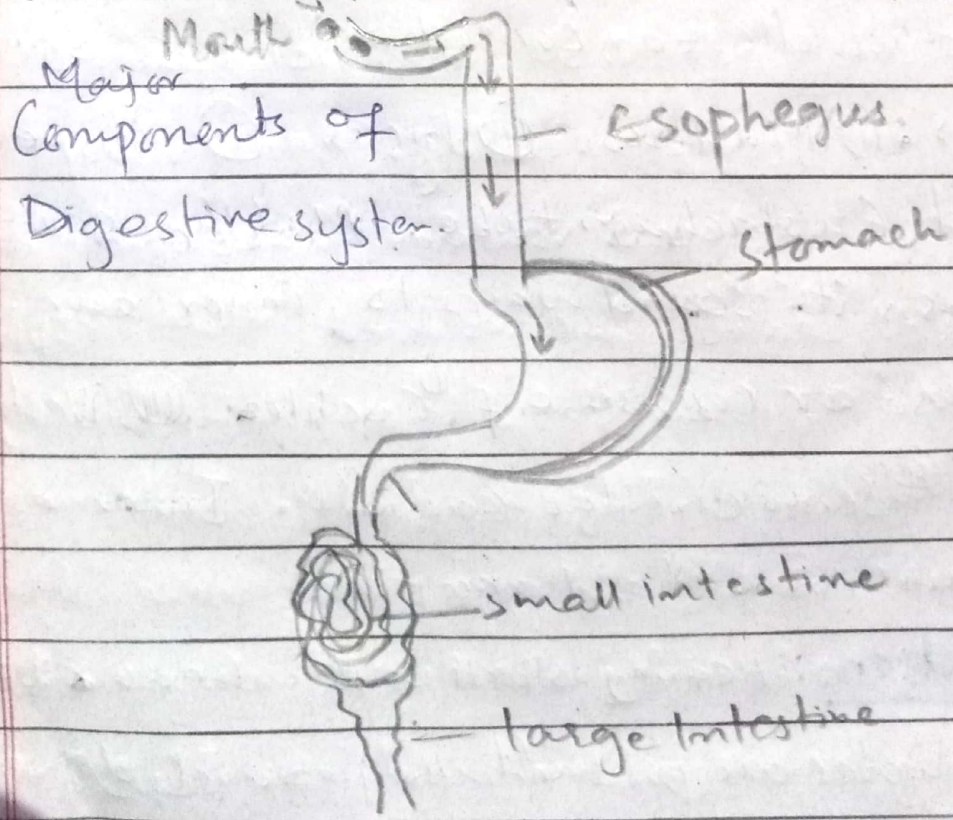 Mouth
Major
Components of
Digestive system.
Esophegus.
Stomach
small intestine
large Intestine